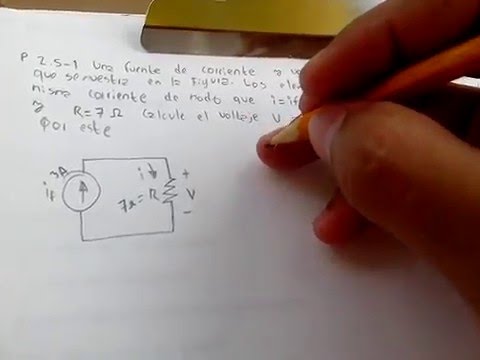 P 2.5-1 Una fuente de corriente y
que se muestra en la figura. Los
misma corriente de modo que i=if
y R=7Ω Calcule el voltaje V
por este
3A
i
+
if
7Ω=R
V
-